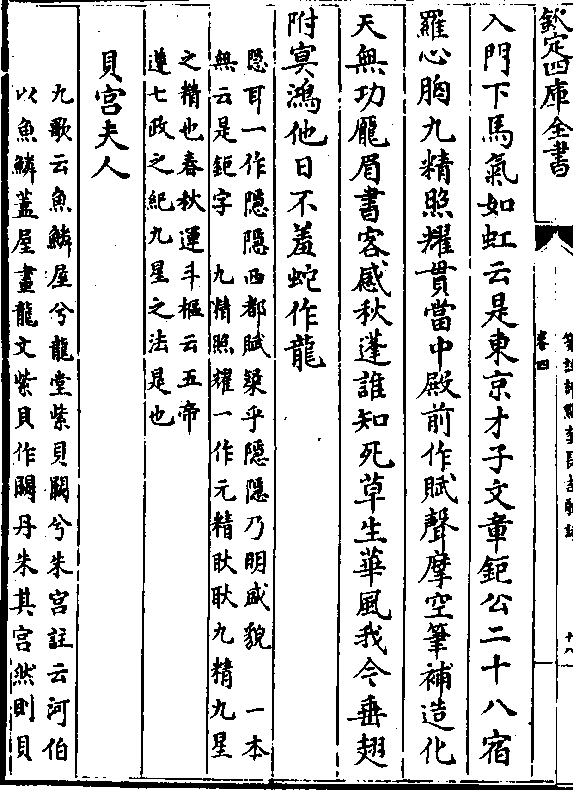 欽定四庫全書
卷四
十八
入門下馬氣如虹云是東京才子文章鉅公二十八宿
羅心胸九精照耀貫當中殿前作賦聲摩空筆補造化
天無功龎眉書客感秋蓬誰知死草生華風我今垂翅
附冥鴻他日不羞蛇作龍
隐耳一作隱隱西都賦粲乎隱隱乃明盛貌 一本
無云是鉅字 九精照耀一作元精耿耿九精九星
之精也春秋運斗樞云五帝
遵七政之紀九星之法是也
貝宫夫人
九歌云魚鱗屋兮龍堂紫貝闕兮朱宫註云河伯
以魚鱗蓋屋畫龍文紫貝作闕丹朱其宫然則貝